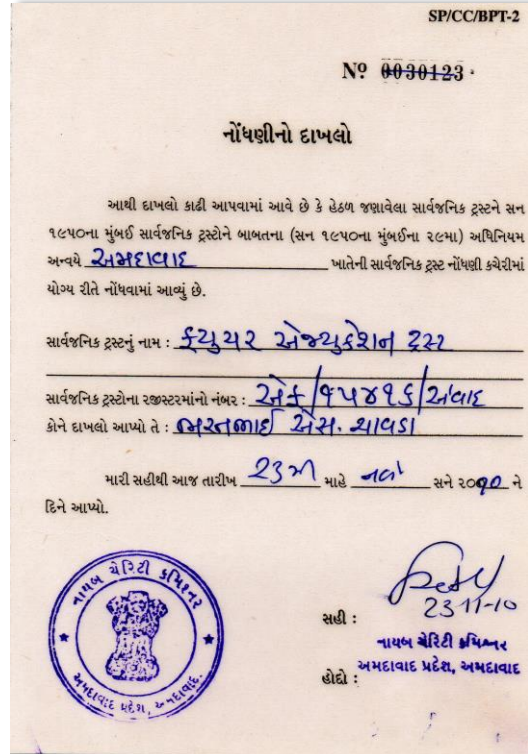 SP/CC/BPT-2
Nº 0030123
નોંધણીનો દાખલો
આથી દાખલો કાઢી આપવામાં આવે છે કે હેઠળ જણાવેલા સાર્વજનિક ટ્રસ્ટને સન
૧૯૫૦ના મુંબઈ સાર્વજનિક ટ્રસ્ટોને બાબતના (સન ૧૯૫૦ના મુંબઈના ૨૯મા) અધિનિયમ
અન્વયે અમદાવાદ ખાતેની સાર્વજનિક ટ્રસ્ટ નોંધણી કચેરીમાં
યોગ્ય રીતે નોંધવામાં આવ્યું છે.
સાર્વજનિક ટ્રસ્ટનું નામ : ફ્યુચર એજ્યુકેશન ટ્રસ્ટ
સાર્વજનિક ટ્રસ્ટોના રજીસ્ટરમાંનો નંબર : એફ/૧૫૪૧૬/અ'વાદ
કોને દાખલો આપ્યો તે : ભરતભાઈ એસ. ચાવડા
મારી સહીથી આજ તારીખ 23મી માહે નવે સને ૨૦૧૦ ને
દિને આપ્યો.
નાયબ ચેરિટી કમિશ્નર
અમદાવાદ પ્રદેશ, અમદાવાદ.
23-11-10
સહી :
નાયબ ચેરિટી કમિશ્નર
અમદાવાદ પ્રદેશ, અમદાવાદ
હોદ્દો :